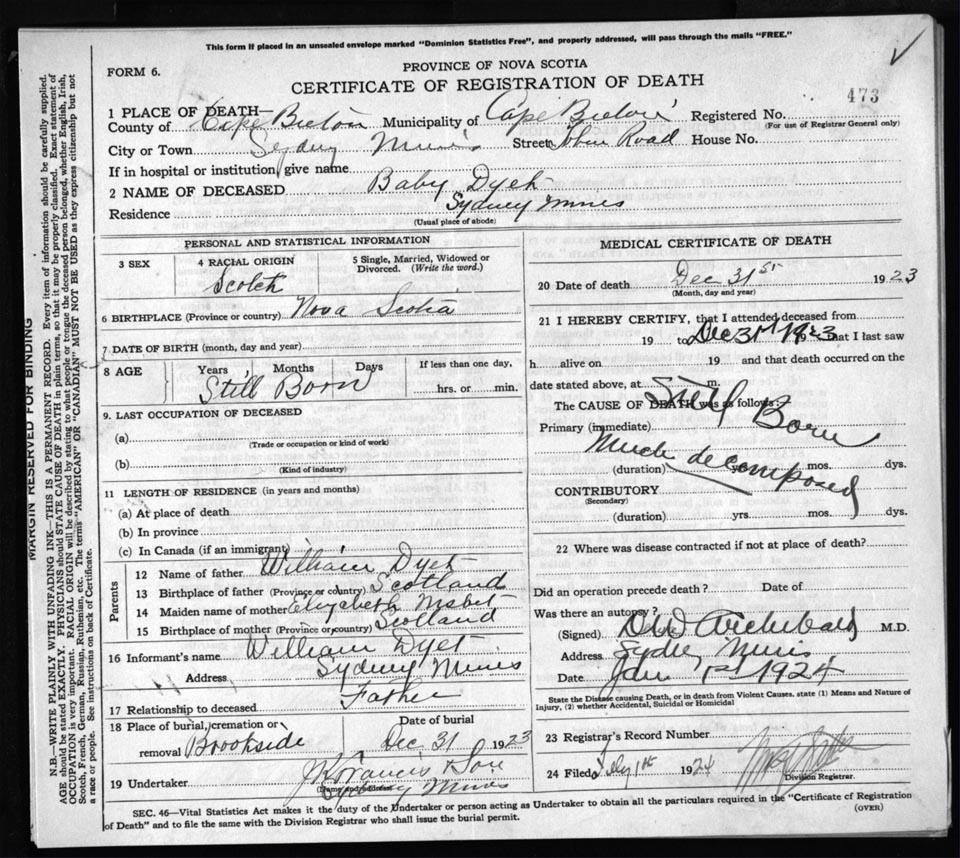 This form if placed in an unsealed envelope marked "Dominion Statistics Free", and properly addressed, will pass through the mails "FREE."
FORM 6.
PROVINCE OF NOVA SCOTIA
CERTIFICATE OF REGISTRATION OF DEATH
473
1 PLACE OF DEATH—
County of Cape Breton Municipality of Cape Breton Registered No.
(For use of Registrar General only)
City or Town Sydney Mines Street Road House No.
If in hospital or institution, give name
2 NAME OF DECEASED Baby Dyet
Residence Sydney Mines
(Usual place of abode)
PERSONAL AND STATISTICAL INFORMATION
3 SEX
4 RACIAL ORIGIN
Scotch
5 Single, Married, Widowed or Divorced. (Write the word.)
6 BIRTHPLACE (Province or country) Nova Scotia
7 DATE OF BIRTH (month, day and year)
8 AGE Years Months Days If less than one day,
Still Born hrs. or min.
9. LAST OCCUPATION OF DECEASED
(a)
(Trade or occupation or kind of work)
(b)
(Kind of industry)
11 LENGTH OF RESIDENCE (in years and months)
(a) At place of death
(b) In province
(c) In Canada (if an immigrant)
Parents
12 Name of father William Dyet
13 Birthplace of father (Province or country) Scotland
14 Maiden name of mother Elizabeth Nisbet
15 Birthplace of mother (Province or country) Scotland
16 Informant's name William Dyet
Address Sydney Mines
17 Relationship to deceased Father
18 Place of burial, cremation or removal Brookside
Date of burial
Dec 31 1923
19 Undertaker J Francis & Son
(Name and address)
Sydney Mines
MEDICAL CERTIFICATE OF DEATH
20 Date of death Dec 31st 1923
(Month, day and year)
21 I HEREBY CERTIFY, that I attended deceased from
19 to Dec 31st 1923 that I last saw
h alive on 19 and that death occurred on the
date stated above, at m.
The CAUSE OF DEATH was as follows:
Primary (immediate) Still Born
Much decomposed
(duration) yrs. mos. dys.
CONTRIBUTORY
(Secondary)
(duration) yrs mos. dys.
22 Where was disease contracted if not at place of death?
Did an operation precede death? Date of
Was there an autopsy?
(Signed) Archibald M.D.
Address Sydney Mines
Date Jan 1st 1924
State the Disease causing Death, or in death from Violent Causes, state (1) Means and Nature of Injury, (2) whether Accidental, Suicidal or Homicidal
23 Registrar's Record Number
24 Filed 1924
Division Registrar.
SEC. 46—Vital Statistics Act makes it the duty of the Undertaker or person acting as Undertaker to obtain all the particulars required in the "Certificate of Registration
of Death" and to file the same with the Division Registrar who shall issue the burial permit.
(OVER)
MARGIN RESERVED FOR BINDING
N.B.—WRITE PLAINLY WITH UNFADING INK—THIS IS A PERMANENT RECORD. Every item of information should be carefully supplied.
AGE should be stated EXACTLY. PHYSICIANS should STATE CAUSE OF DEATH in plain terms, so that it may be properly classified. Exact statement of
OCCUPATION is very important. RACIAL ORIGIN will be described by stating to what people or tongue the deceased person belonged, whether English, Irish,
Scotch, French, German, Russian, Ruthenian, etc. The terms "AMERICAN" OR "CANADIAN" MUST NOT BE USED as they express citizenship but not
a race or people. See instructions on back of Certificate.